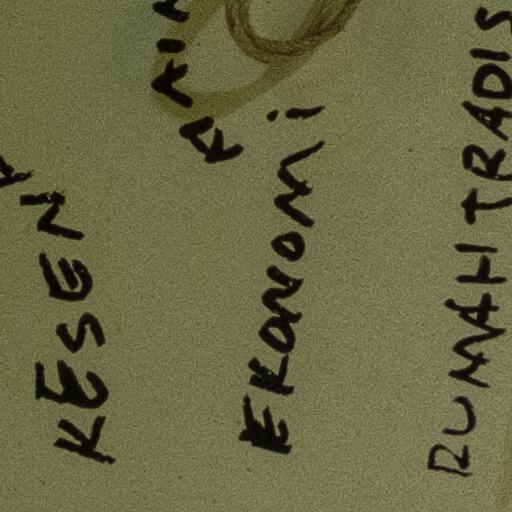 KESEN
EKONOMi
RUMAH TRADIS